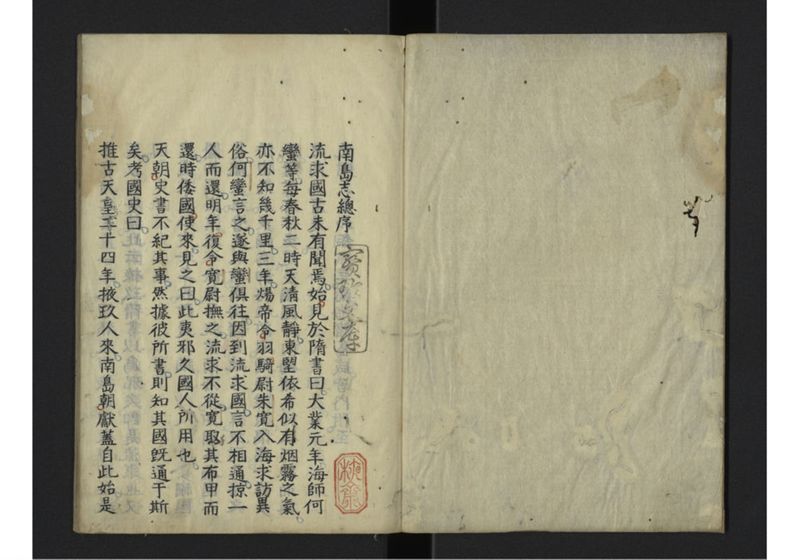 南島志總序
流求國古未有聞焉始見於隋書曰大業元年海師何
蠻等每春秋二時天清風靜東望依希似有烟霧之氣
亦不知幾千里三年煬帝令羽騎尉朱寬入海求訪異
俗何蠻言之遂與蠻俱往因到流求國言不相通掠一
人而還明年復令寬尉撫之流求不從寬取其布甲而
還時倭國使來見之曰此夷邪久國人所用也
天朝史書不紀其事然據彼所書則知其國既通于斯
矣考國史曰
推古天皇二十四年掖玖人來南島朝獻蓋自此始是